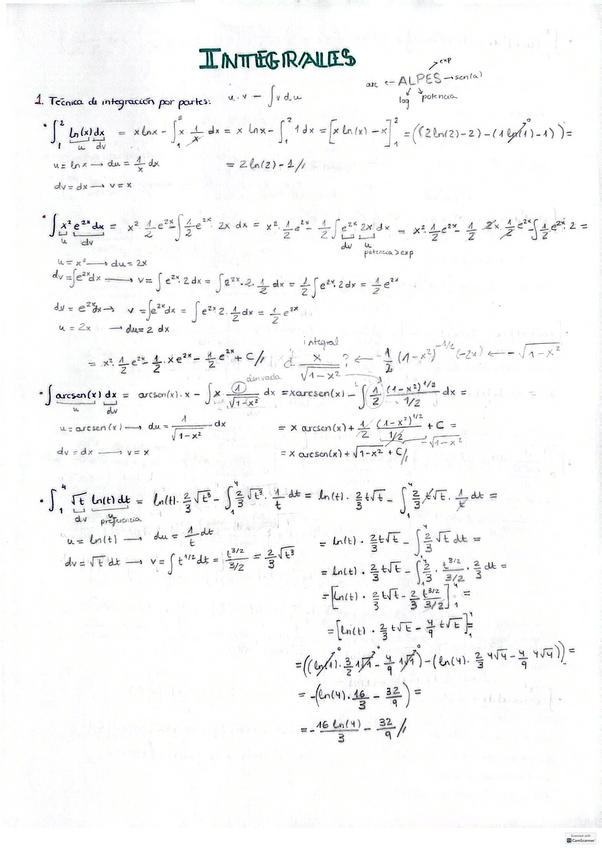 INTEGRALES
exp
arc ← ALPES → sen(a)
log potencia
1. Técnica de integración por partes: u · v − ∫ v du
• ∫₁² ln(x) dx = x ln x − ∫₁² x 1/x dx = x ln x − ∫₁² 1 dx = [x ln(x) − x]₁² = ((2 ln(2) − 2) − (1 ln(1) − 1)) =
u dv
u = ln x → du = 1/x dx = 2 ln(2) − 1 //
dv = dx → v = x
• ∫ x² e^2x dx = x² 1/2 e^2x − ∫ 1/2 e^2x · 2x dx = x² · 1/2 e^2x − 1/2 ∫ e^2x 2x dx = x² · 1/2 e^2x − 1/2 · 2x · 1/2 e^2x − ∫ 1/2 e^2x · 2 =
u dv dv u
potencia > exp
u = x² → du = 2x
dv = ∫ e^2x dx → v = ∫ e^2x · 2 dx = ∫ e^2x · 2 · 1/2 dx = 1/2 ∫ e^2x · 2 dx = 1/2 e^2x
dv = e^2x dx → v = ∫ e^2x dx = ∫ e^2x 2 · 1/2 dx = 1/2 e^2x
u = 2x → du = 2 dx
= x² · 1/2 e^2x − 1/2 · x e^2x − 1/2 e^2x + C //
integral
¿ x/√(1−x²) ? ← −1/2 (1−x²)^−1/2 (−2x) ← −√(1−x²)
derivada
• ∫ arcsen(x) dx = arcsen(x) · x − ∫ x 1/√(1−x²) dx = x arcsen(x) − ∫ 1/2 (1−x²)^1/2 / 1/2 dx =
u dv
u = arcsen(x) → du = 1/√(1−x²) dx = x arcsen(x) + 1/2 (1−x²)^1/2 / 1/2 + C =
√(1−x²)
dv = dx → v = x = x arcsen(x) + √(1−x²) + C //
• ∫₁⁴ √t ln(t) dt = ln(t) · 2/3 √t³ − ∫₁⁴ 2/3 √t³ · 1/t dt = ln(t) · 2/3 t√t − ∫₁⁴ 2/3 t√t · 1/t dt =
dv u
u = ln(t) → du = 1/t dt
= ln(t) · 2/3 t√t − ∫₁⁴ 2/3 √t dt =
dv = √t dt → v = ∫ t^1/2 dt = t^3/2 / 3/2 = 2/3 √t³
= ln(t) · 2/3 t√t − ∫₁⁴ 2/3 · t^3/2 / 3/2 · 2/3 dt =
= [ln(t) · 2/3 t√t − 2/3 t^3/2 / 3/2]₁⁴ =
= [ln(t) · 2/3 t√t − 4/9 t√t]₁⁴ =
= ((ln(1) · 3/2 1√1 − 4/9 1√1) − (ln(4) · 2/3 4√4 − 4/9 4√4)) =
= −(ln(4) · 16/3 − 32/9) =
= −16 ln(4)/3 − 32/9 //
Scanned with
CamScanner